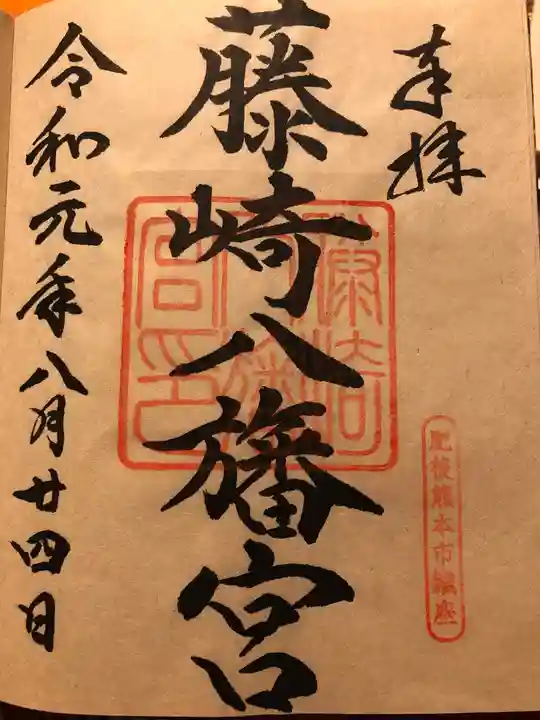 奉拝
肥後熊本市鎮座
藤崎八旛宮
藤崎八旛宮印
令和元年八月廿四日